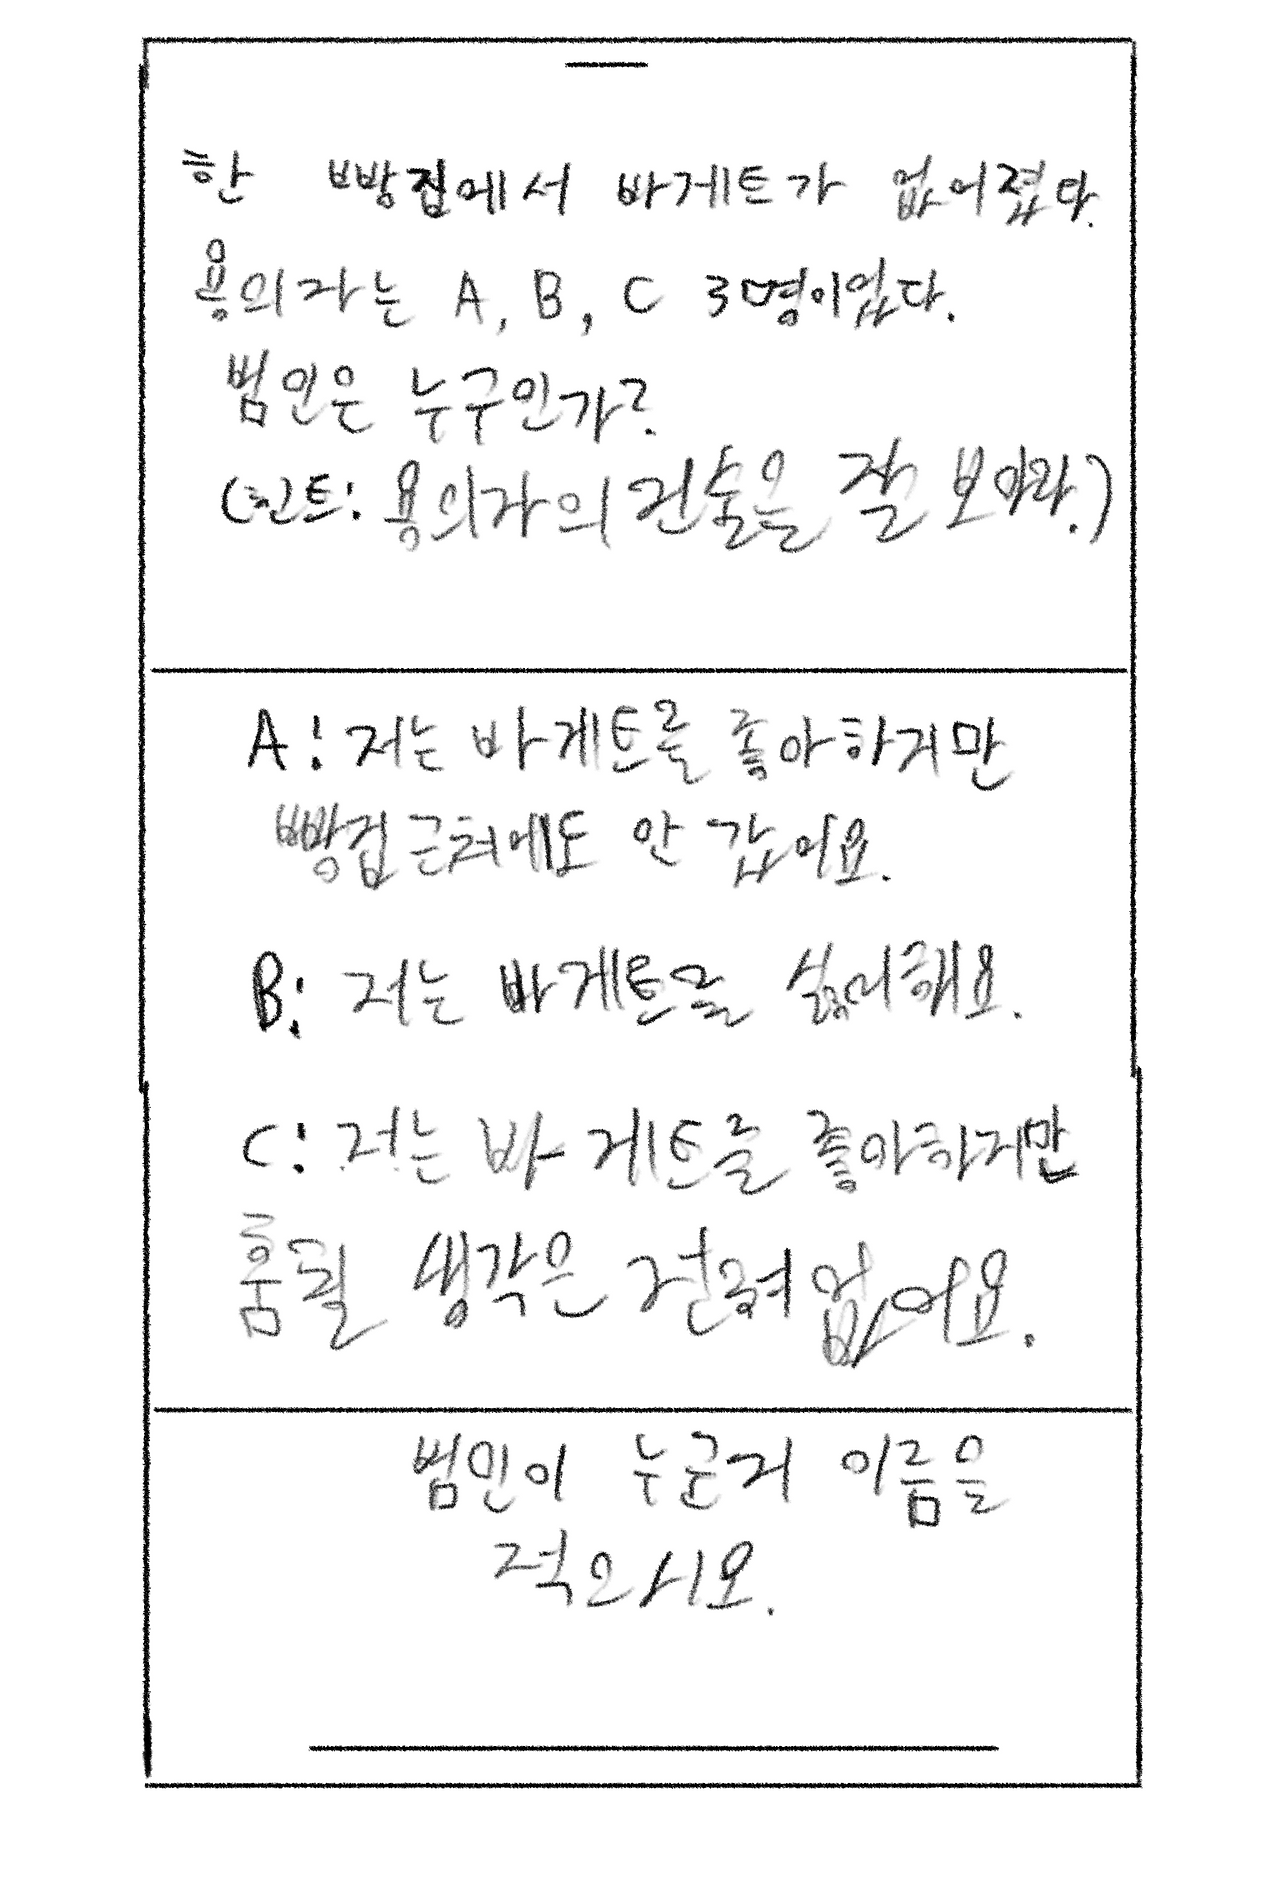 한 빵집에서 바게트가 없어졌다.
용의자는 A, B, C 3명이었다.
범인은 누구인가?
(힌트: 용의자의 진술을 잘 보아라.)
A: 저는 바게트를 좋아하지만
빵집 근처에도 안 갔어요.
B: 저는 바게트를 싫어해요.
C: 저는 바게트를 좋아하지만
훔칠 생각은 전혀 없어요.
범인이 누군지 이름을
적으시오.